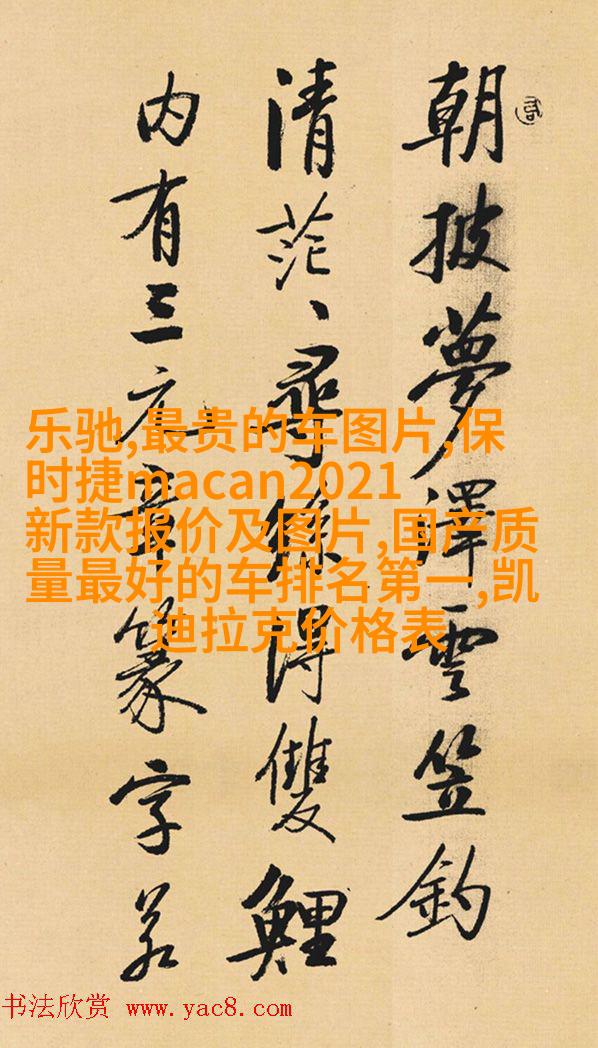 朝披夢澤雲笠釣
清茫、尋絲得雙鯉
内有三元章篆字若
乐驰,最贵的车图片,保
时捷macan2021
新款报价及图片,国产质
量最好的车排名第一,凯
迪拉克价格表
书法欣赏 www.yac8.com